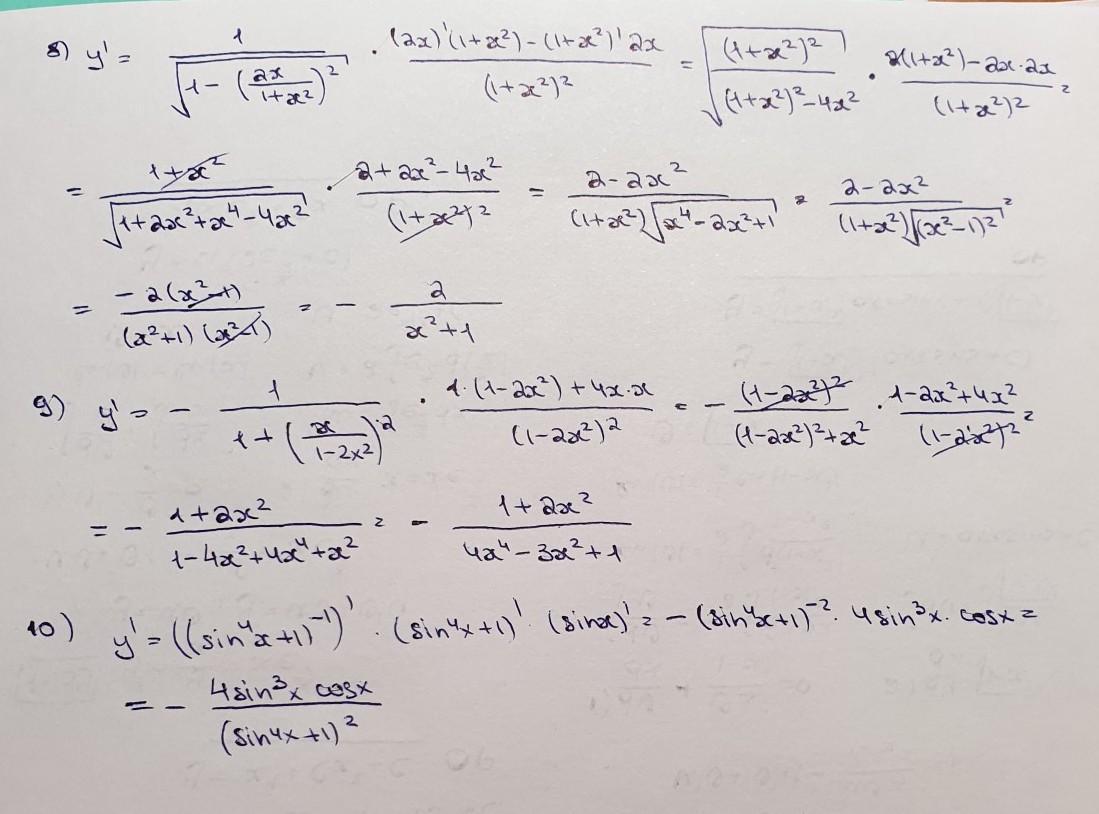 8) y' = 1/√(1 - (2x/(1+x²))²) · ((2x)'(1+x²) - (1+x²)' 2x)/(1+x²)² = √((1+x²)²/((1+x²)² - 4x²)) · (2(1+x²) - 2x·2x)/(1+x²)² =
= (1+x²)/√(1+2x²+x⁴-4x²) · (2+2x²-4x²)/(1+x²)² = (2-2x²)/((1+x²)√(x⁴-2x²+1)) = (2-2x²)/((1+x²)√((x²-1)²)) =
= (-2(x²-1))/((x²+1)(x²-1)) = - 2/(x²+1)
9) y' = - 1/(1+(x/(1-2x²))²) · (1·(1-2x²)+4x·x)/(1-2x²)² = - (1-2x²)²/((1-2x²)²+x²) · (1-2x²+4x²)/(1-2x²)² =
= - (1+2x²)/(1-4x²+4x⁴+x²) = - (1+2x²)/(4x⁴-3x²+1)
10) y' = ((sin⁴x+1)⁻¹)' · (sin⁴x+1)' · (sinx)' = -(sin⁴x+1)⁻² · 4sin³x · cosx =
= - (4sin³x cosx)/(sin⁴x+1)²